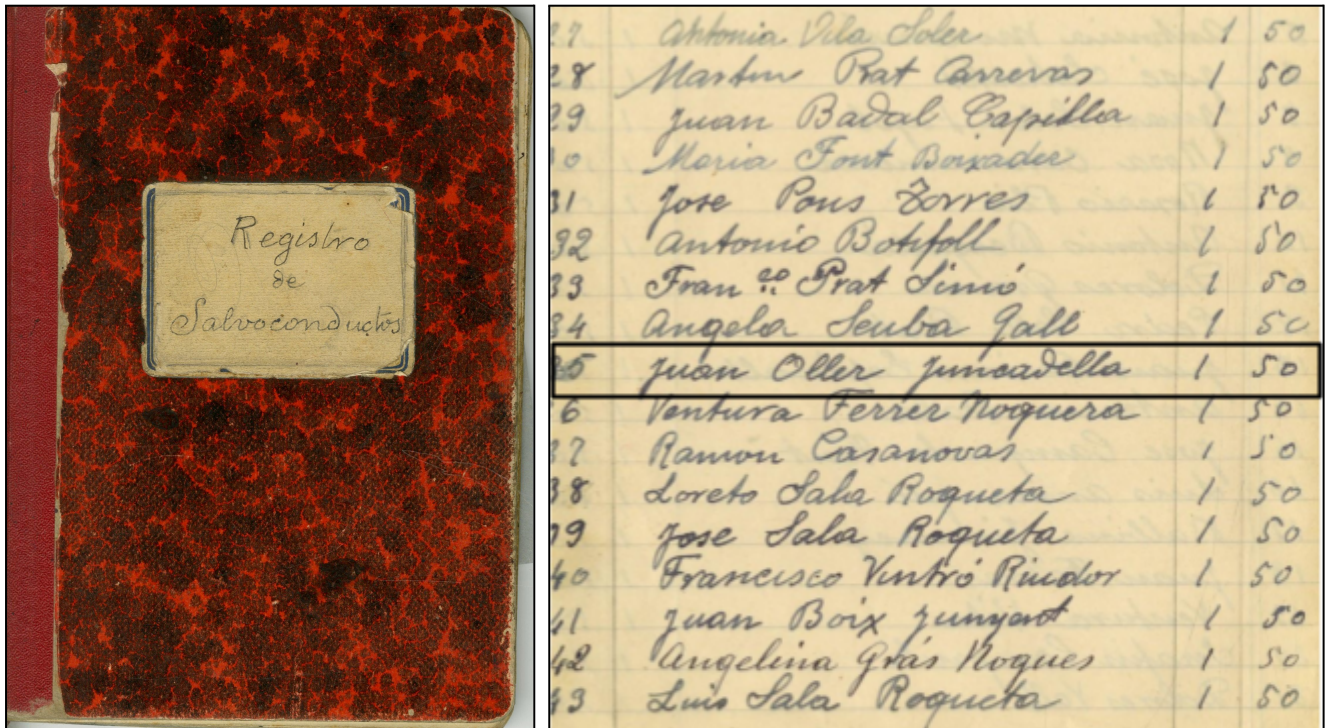 Registro
de
Salvoconductos
27 Antonia Vila Soler 1 50
28 Martin Prat Carreras 1 50
29 Juan Badal Capilla 1 50
30 Maria Font Boixader 1 50
31 Jose Pons Torres 1 50
32 Antonio Botifoll 1 50
33 Fran co Prat Simó 1 50
34 Angela Seuba Gall 1 50
35 Juan Oller Juncadella 1 50
36 Ventura Ferrer Noguera 1 50
37 Ramon Casanovas 1 50
38 Loreto Sala Roqueta 1 50
39 Jose Sala Roqueta 1 50
40 Francisco Vintró Riudor 1 50
41 Juan Boix Junyent 1 50
42 Angelina Grás Nogues 1 50
43 Luis Sala Roqueta 1 50